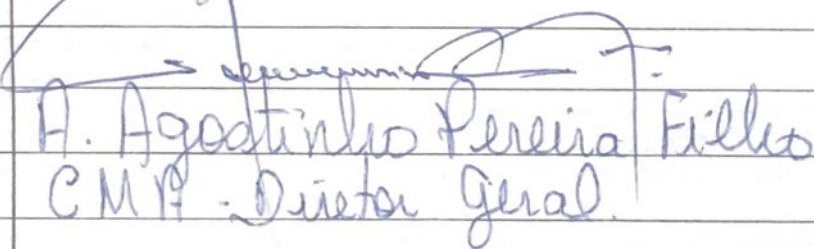 A. Agostinho Pereira Filho
CMA - Diretor Geral.